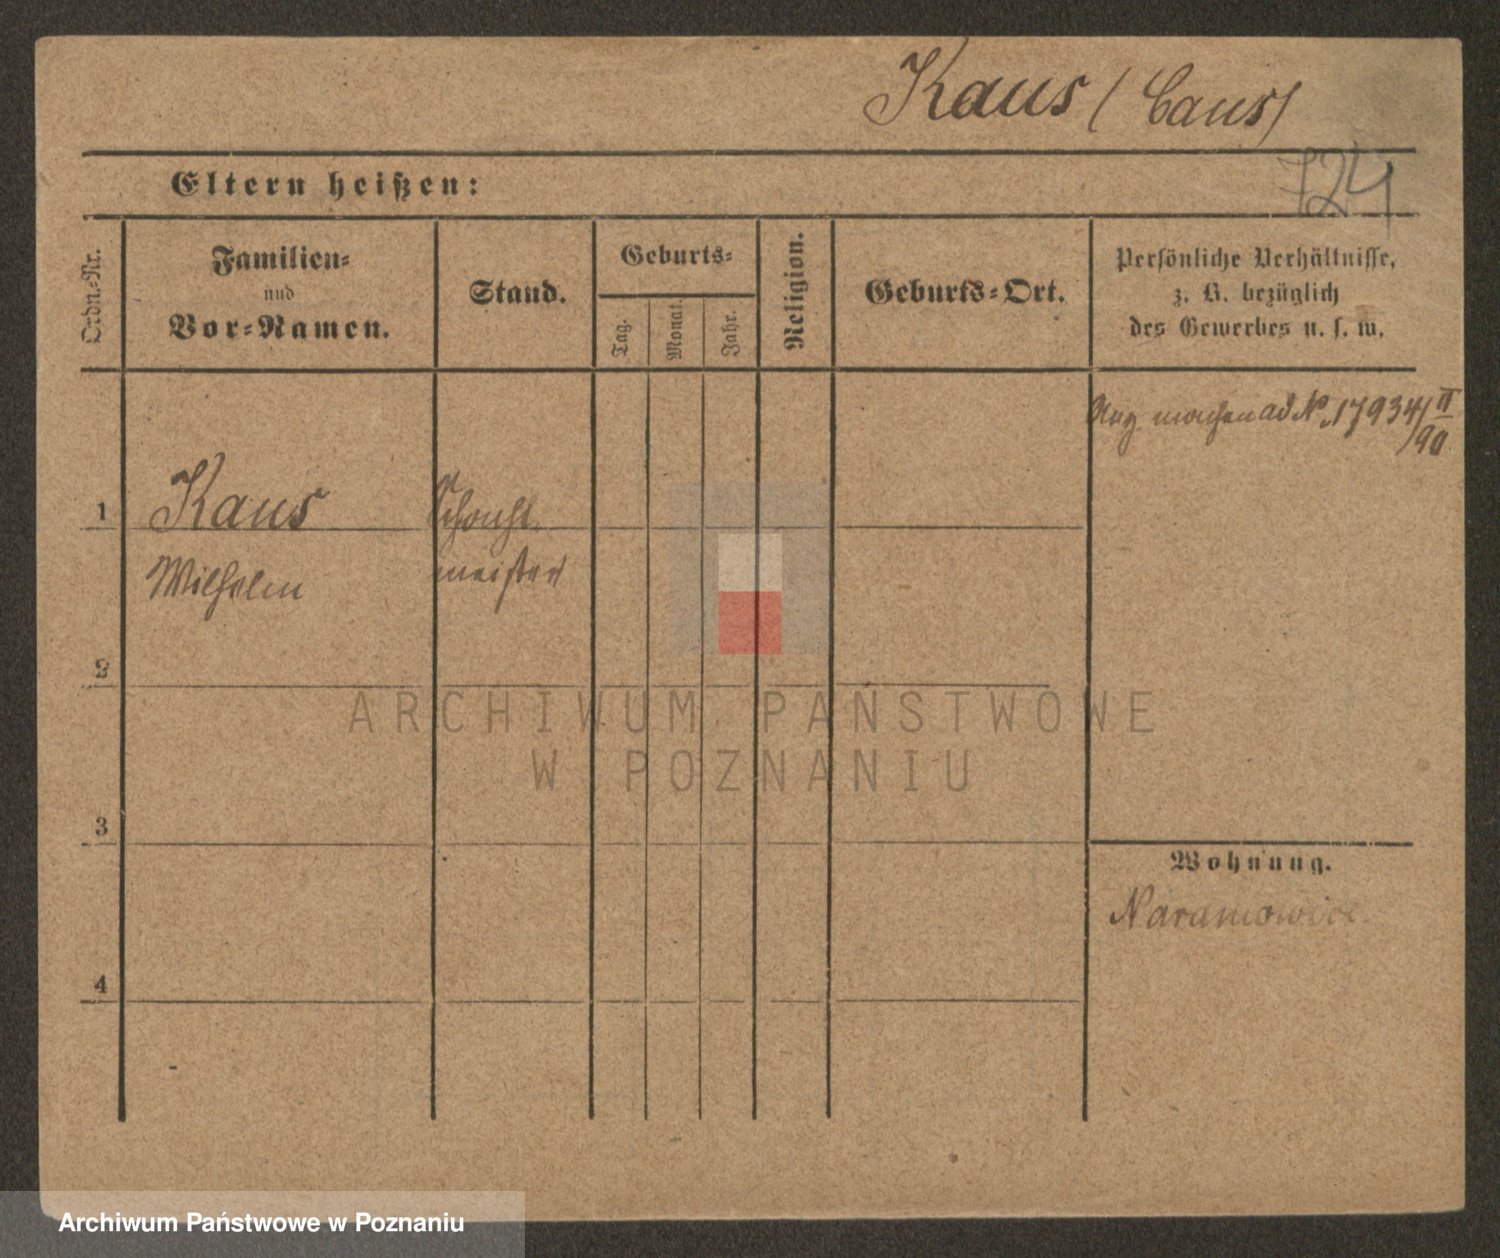 Kaus (Caus)
724
Eltern heißen:
Ordn.-Nr.
Familien-
und
Vor-Namen.
Stand.
Geburts-
Tag.
Monat.
Jahr.
Religion.
Geburts-Ort.
Persönliche Verhältnisse,
z. B. bezüglich
des Gewerbes u. s. w.
ad No. 17934/II
90
1
Kaus
Wilhelm
Schacht
meister
2
3
4
Wohnung.
Naramowice.
ARCHIWUM PAŃSTWOWE
W POZNANIU
Archiwum Państwowe w Poznaniu